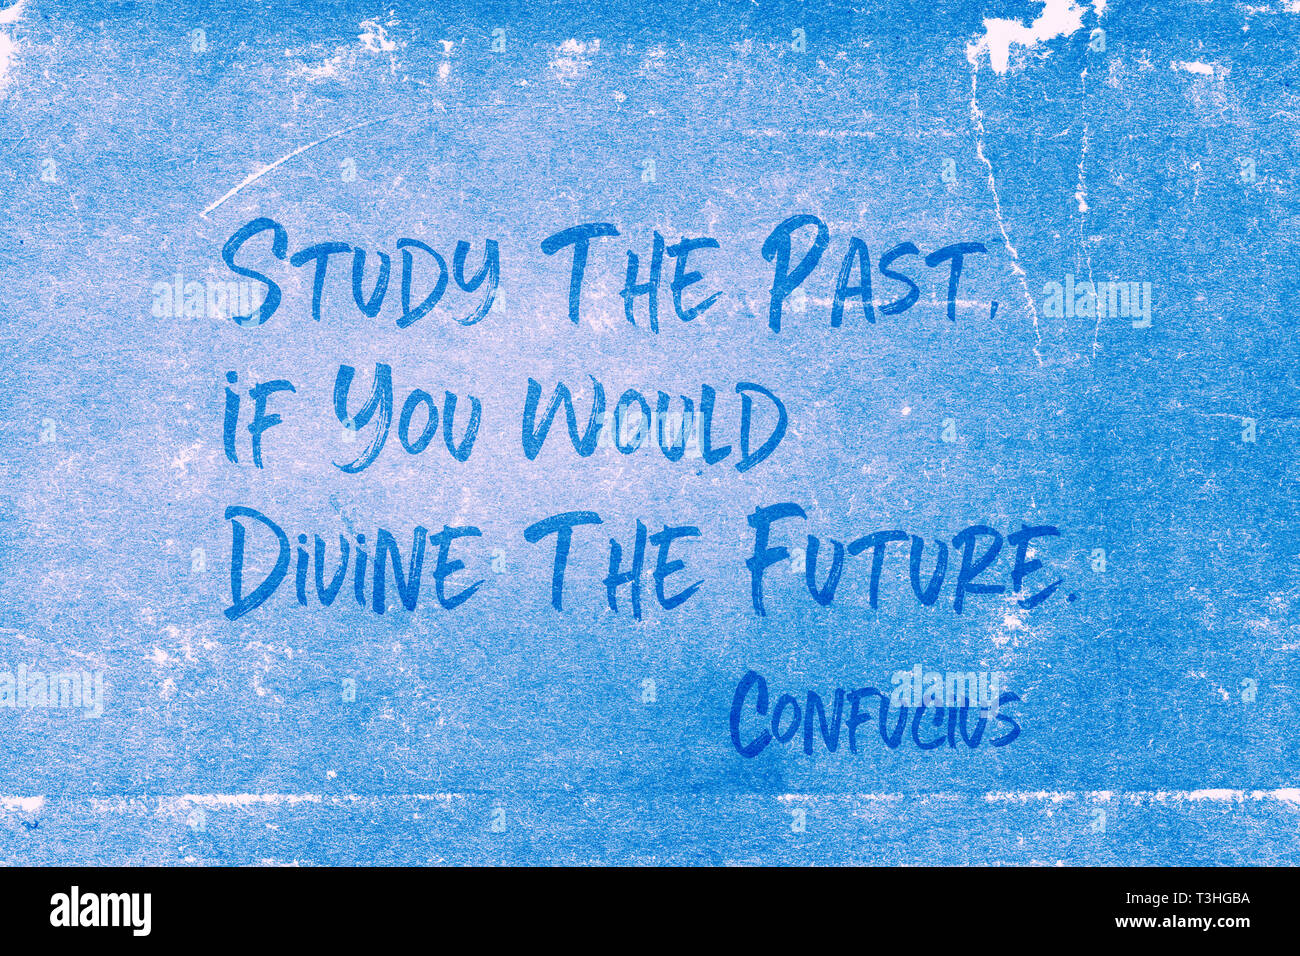 Study The Past,
if You Would
Divine The Future.
Confucius
alamy
alamy
alamy
alamy
alamy
alamy
alamy
alamy
a alamy
Image ID: T3HGBA
www.alamy.com